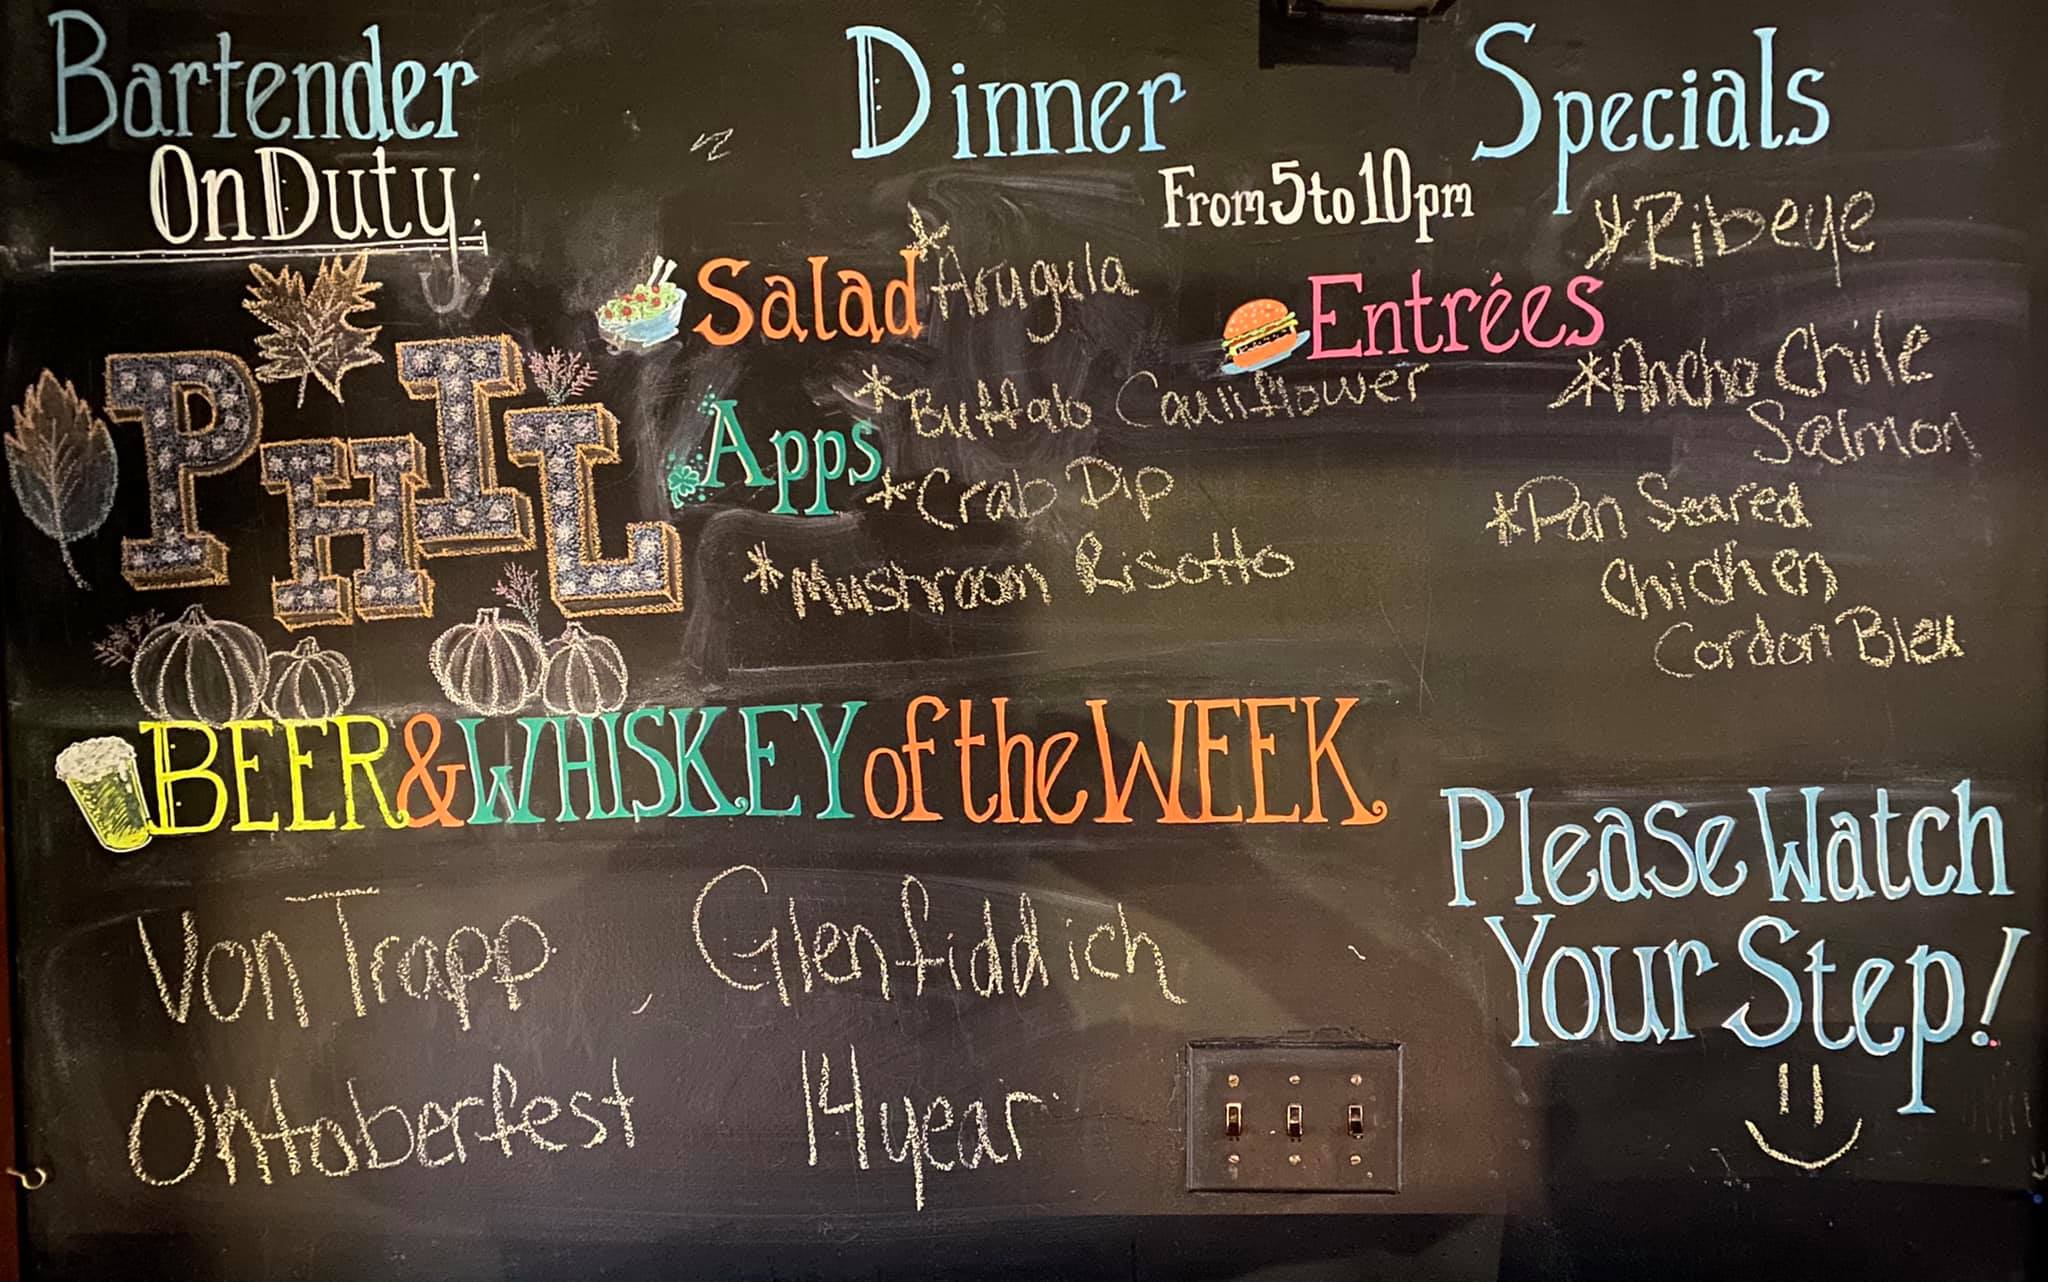 Bartender
On Duty:
PHIL
Dinner Specials
From 5 to 10pm
Salad
*Arugula
Apps
*Buffalo Cauliflower
*Crab Dip
*Mushroom Risotto
Entrées
*Ribeye
*Ancho Chile
Salmon
*Pan Seared
Chicken
Cordon Bleu
BEER & WHISKEY of the WEEK
Von Trapp
Oktoberfest
Glenfiddich
14 year
Please Watch
Your Step!